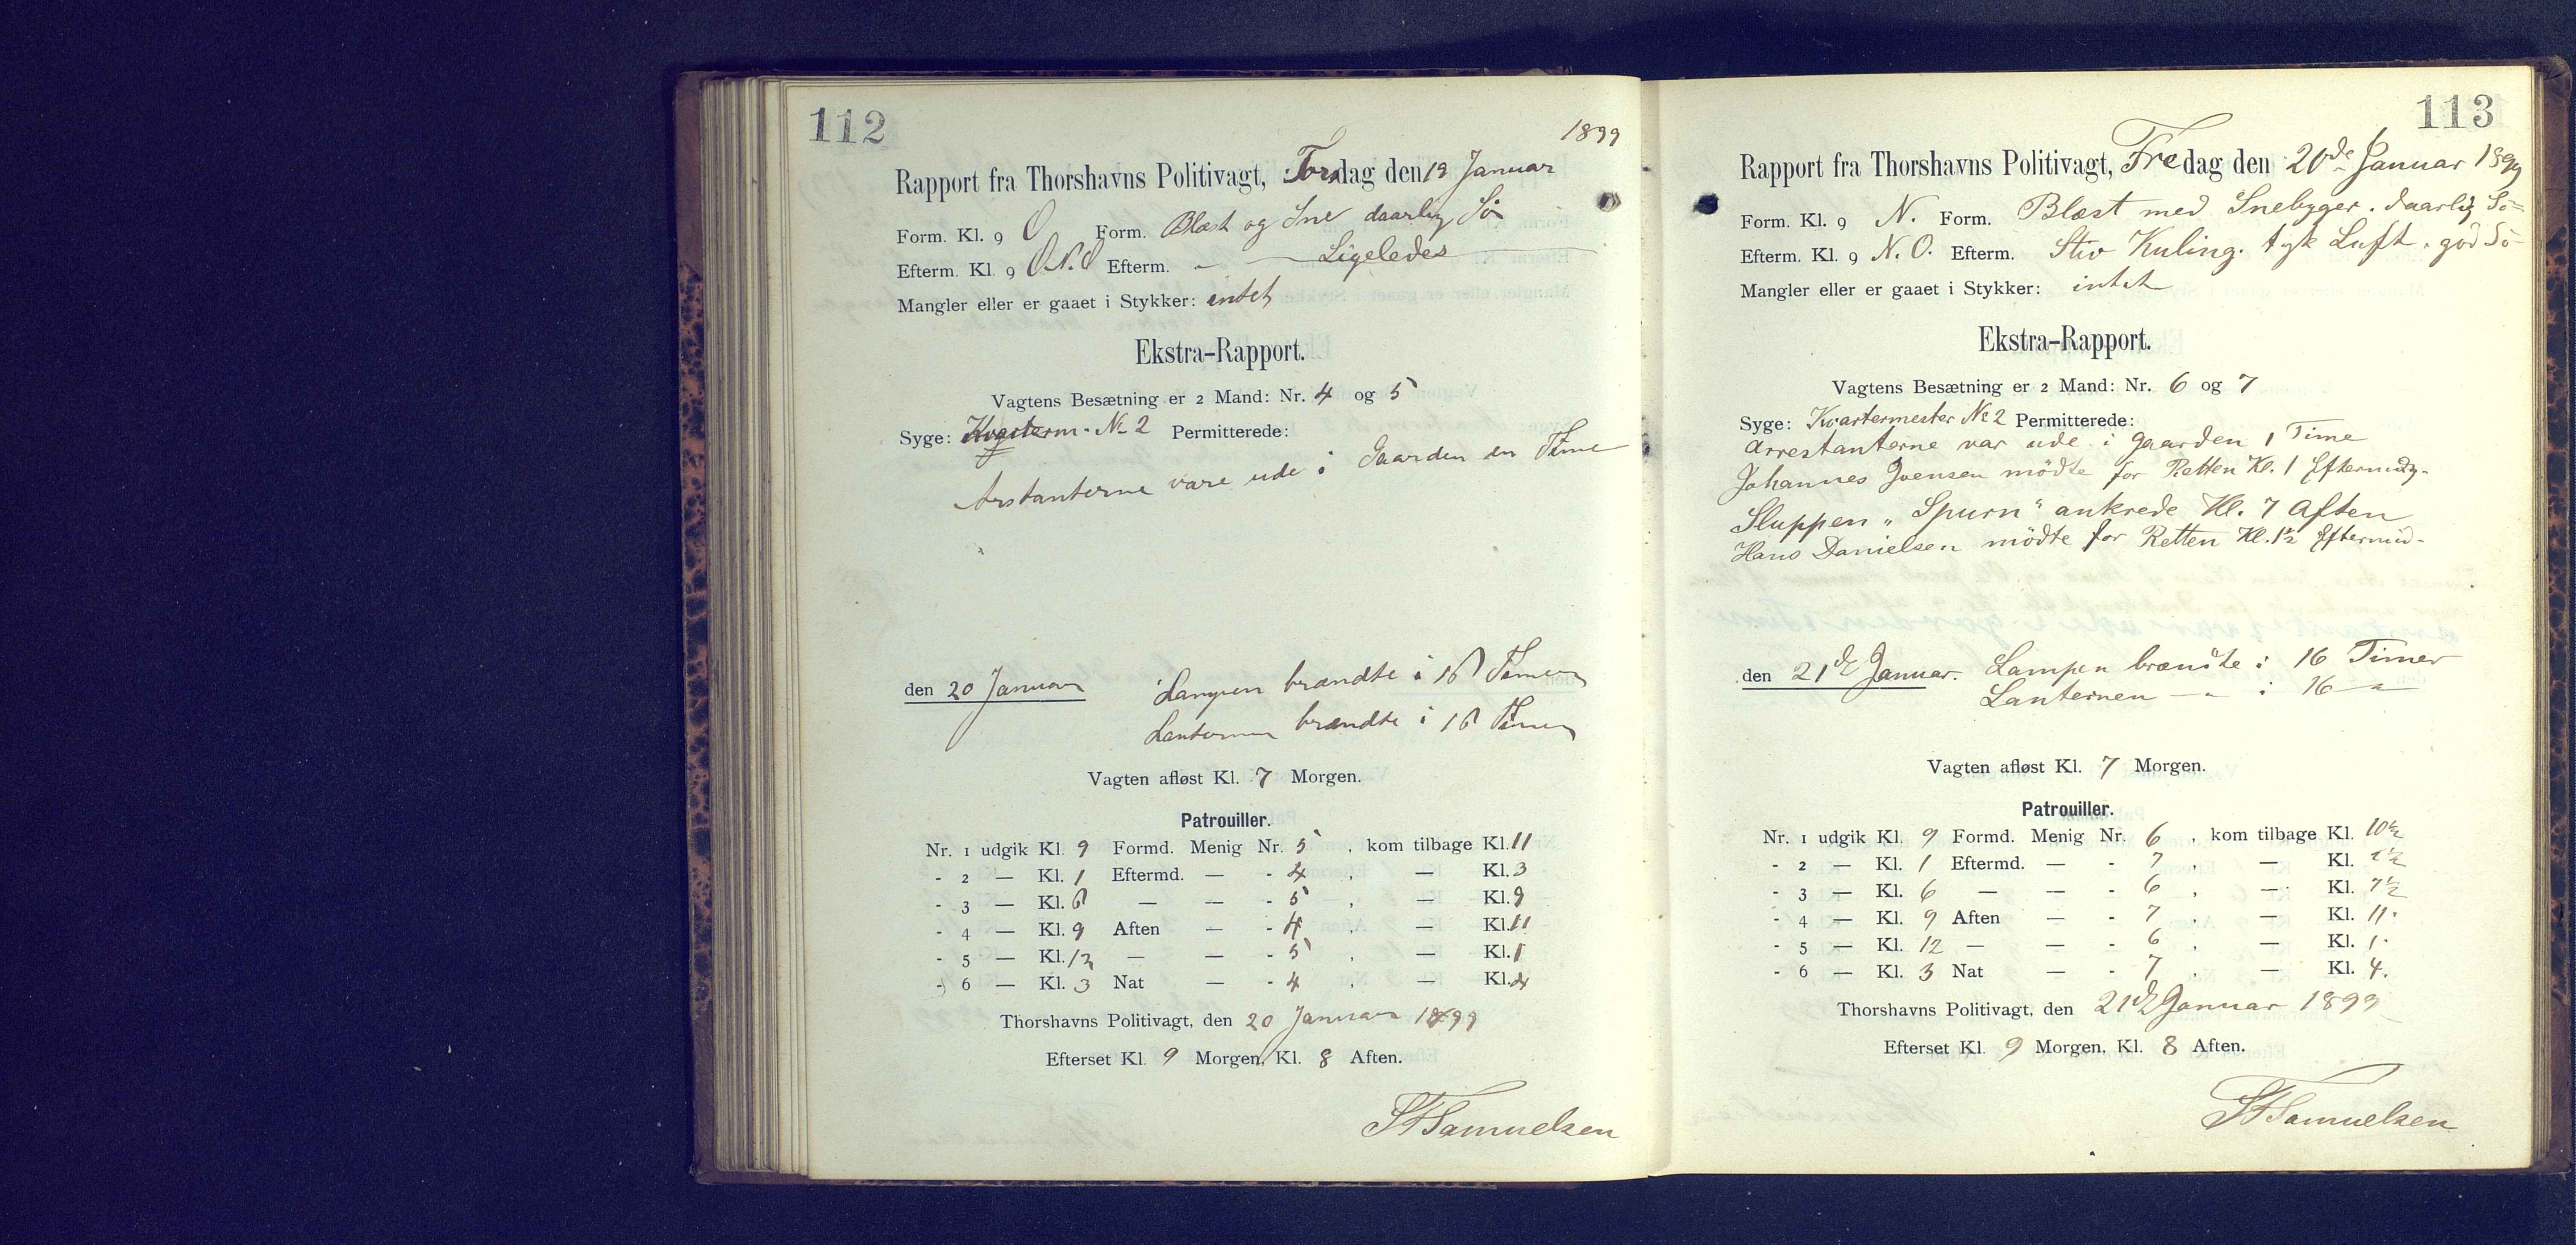 112
1899
Rapport fra Thorshavns Politivagt, Torsdag den 19 Januar
Form. Kl. 9 O Form. Blæst og Sne daarlig Sö
Efterm. Kl. 9 O.N.O Efterm. - — Ligeledes
Mangler eller er gaaet i Stykker: intet
Ekstra-Rapport.
Vagtens Besætning er 2 Mand: Nr. 4 og 5
Syge: Kvarterm. No 2 Permitterede:
Arstanterne vare ude i Gaarden en Time
den 20 Januar Lampen brændte i 16 Timer
Lanternen brændte i 16 Timer
Vagten afløst Kl. 7 Morgen.
Patrouiller.
Nr. 1 udgik Kl. 9 Formd. Menig Nr. 5 , kom tilbage Kl. 11
- 2 — Kl. 1 Eftermd. — - 4 , — Kl. 3
- 3 — Kl. 6 — — - 5 , — Kl. 9
- 4 — Kl. 9 Aften — - 4 , — Kl. 11
- 5 — Kl. 12 — — - 5 , — Kl. 1
- 6 — Kl. 3 Nat — - 4 , — Kl. 4
Thorshavns Politivagt, den 20 Januar 1899
Efterset Kl. 9 Morgen, Kl. 8 Aften.
Samuelsen
113
Rapport fra Thorshavns Politivagt, Fredag den 20de Januar 1899
Form. Kl. 9 N. Form. Blæst med Snebyger. daarlig Sö
Efterm. Kl. 9 N.O. Efterm. Stiv Kuling. tyk Luft. god Sö
Mangler eller er gaaet i Stykker: intet
Ekstra-Rapport.
Vagtens Besætning er 2 Mand: Nr. 6 og 7
Syge: Kvartermester No 2 Permitterede:
Arrestanterne var ude i Gaarden 1 Time
Johannes Joensen mödte for Retten Kl. 1 Eftermidg.
Sluppen „Spurn“ ankrede Kl. 7 Aften
Hans Danielsen mödte for Retten Kl. 1½ Eftermid-
den 21de Januar. Lampen brændte i 16 Timer
Lanternen — " i 16 "
Vagten afløst Kl. 7 Morgen.
Patrouiller.
Nr. 1 udgik Kl. 9 Formd. Menig Nr. 6 , kom tilbage Kl. 10½
- 2 — Kl. 1 Eftermd. — - 7 , — Kl. 2½
- 3 — Kl. 6 — — - 6 , — Kl. 7½
- 4 — Kl. 9 Aften — - 7 , — Kl. 11.
- 5 — Kl. 12 — — - 6 , — Kl. 1.
- 6 — Kl. 3 Nat — - 7 , — Kl. 4.
Thorshavns Politivagt, den 21de Januar 1899
Efterset Kl. 9 Morgen, Kl. 8 Aften.
Samuelsen